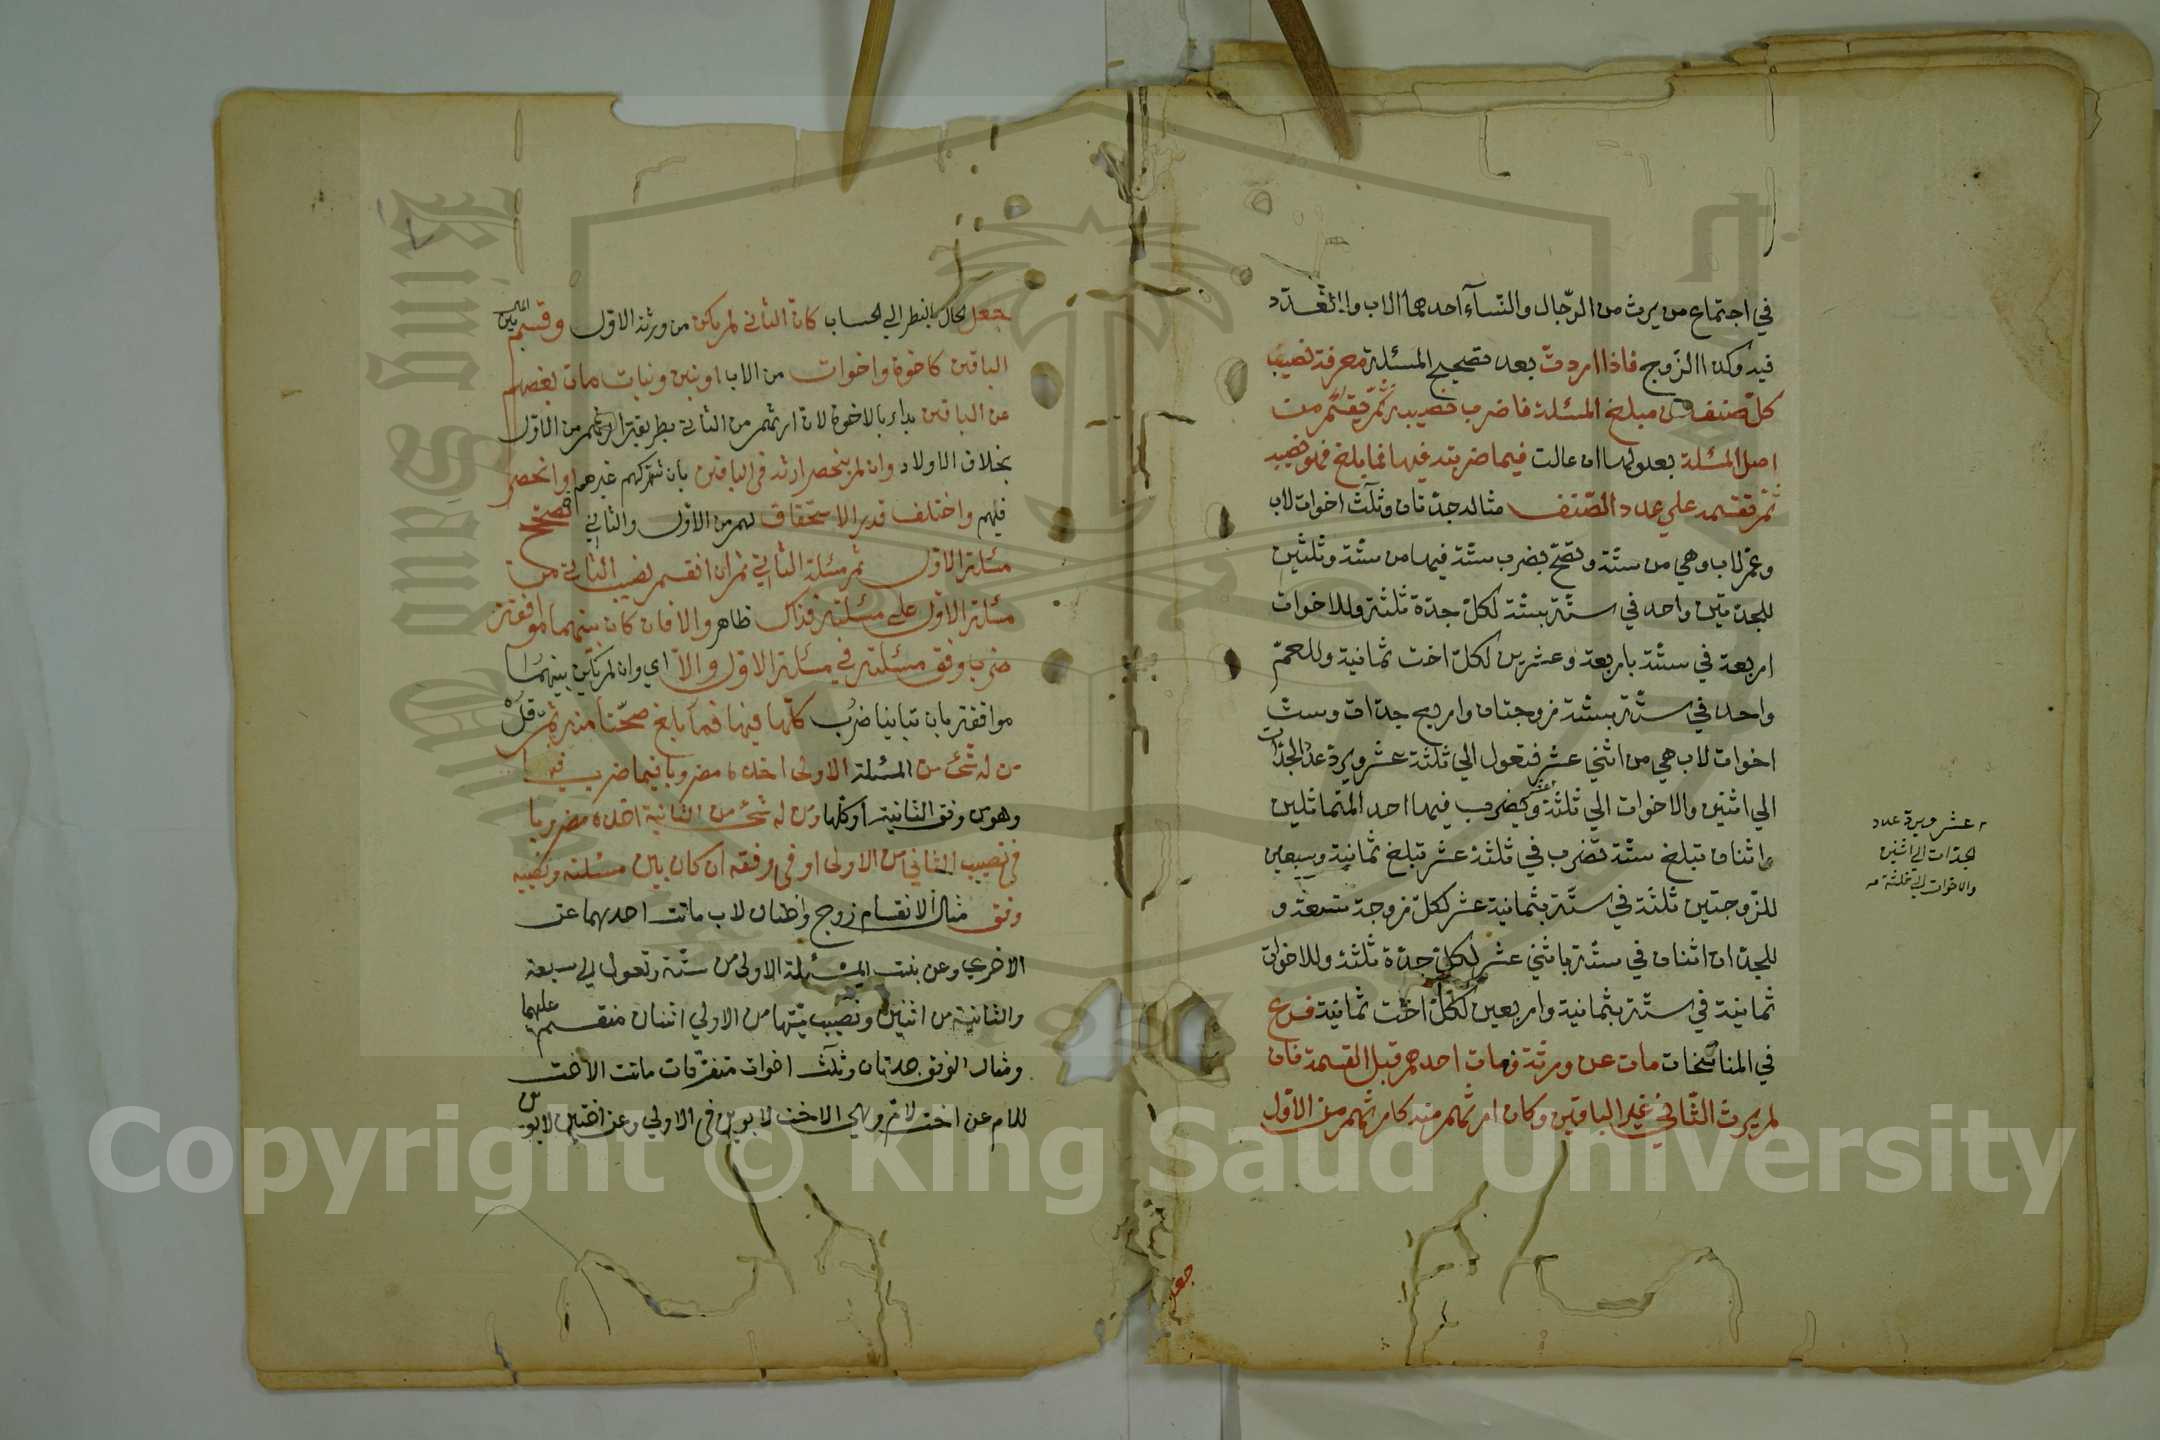 في اجتماع من يرث من الرّجال والنّسآء احدهما الاب والتعدد
فيه وكذا الزوج فاذا اردت بعد تصحيح المسئلة معرفة نصيب
كل صنف من مبلغ المسئلة فاضرب نصيبه من
اصل المسئلة بعولها ان عالت فيما ضربته فيها فما بلغ فهو نصيبه
ثم تقسمه علي عدد الصّنف مثاله جدّتان وثلث اخوات لاب
وعمّ لاب وهي من ستّة وتصحّ بضرب ستّة فيها من ستّة وثلثين
للجدّتين واحد في ستّة بستّة لكلّ جدّة ثلثة وللاخوات
اربعة في ستّة باربعة وعشرين لكلّ اخت ثمانية وللعمّ
واحد في ستّة بستّة زوجتان واربع جدّات وست
اخوات لاب هي من اثني عشر فتعول الي ثلثة عشر ويرد عدد الجدّات
الي اثنين والاخوات الي ثلثة ويضرب فيها احد المتماثلين
واثنان تبلغ ستّة تضرب في ثلثة عشر تبلغ ثمانية وسبعين
للزوجتين ثلثة في ستّة بثمانية عشر لكلّ زوجة تسعة و
للجدّات اثنان في ستّة باثني عشر لكلّ جدّة ثلثة وللاخوات
ثمانية في ستّة بثمانية واربعين لكلّ اخت ثمانية فرع
في المناسخات مات عن ورثة فمات احدهم قبل القسمة فان
لم يرث الثّاني غير الباقين وكان ارثهم منه كارثهم من الاوّل
عشر ويرد عدد
الجدّات الي اثنين
والاخوات الي ثلثة
جعل
جعل الحال بالنظر الي الحساب كان الثاني لم يكن من ورثة الاوّل وقسم المال بين
الباقين كاخوة واخوات من الاب او بنين وبنات مات بعضهم
عن الباقين بداء بالاخوة لان ارثهم من الثاني بطريقة ارثهم من الاوّل
بخلاف الاولاد وان لم ينحصر ارثه في الباقين بان شركهم غيرهم او انحصر
فيهم واختلف قدر الاستحقاق لهم من الاوّل والثاني فصحح
مسئلة الاوّل ثم مسئلة الثاني ثم ان انقسم نصيب الثاني من
مسئلة الاوّل علي مسئلته فذاك ظاهر والا فان كان بينهما موافقة
ضرب وفق مسئلته في مسئلة الاوّل والاّ اي وان لم يكن بينهما
موافقة بان تباينا ضرب كلّها فيها فما بلغ صحّتا منه ثمّ قل
من له شئ من المسئلة الاولى اخذه مضروبا فيما ضرب فيها
وهو من وفق الثانية او كلها ومن له شئ من الثانية اخذه مضروبا
في نصيب الثاني من الاولى او في وفقه ان كان بين مسئلته ونصيبه
وفق مثال الانقسام زوج واختان لاب ماتت احدهما عن
الاخرى وعن بنت المسئلة الاولى من ستّة وتعول الي سبعة
والثانية من اثنين ونصيب ميّتها من الاولي اثنان منقسم عليهما
ومثال الوفق جدتان وثلث اخوات متفرّقات ماتت الاخت
للام عن اخت لام وهي الاخت لابوين في الاولي وعن اختين لابوين
King Saud University
Copyright © King Saud University